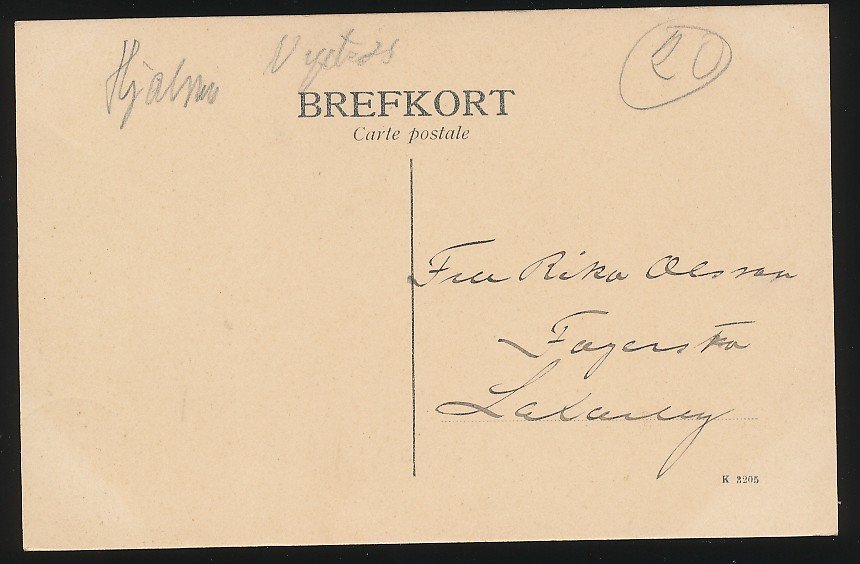 Hjalmar
20
BREFKORT
Carte postale
Fru Rika Olsson
Fagersta
K 3205